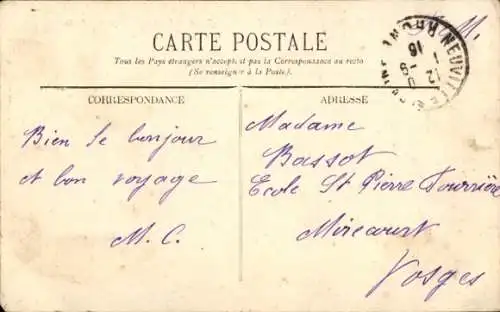 F. M.
CARTE POSTALE
Tous les Pays étrangers n'acceptent pas la Correspondance au recto
(Se renseigner à la Poste.)
CORRESPONDANCE
ADRESSE
Bien le bonjour
et bon voyage
M. C.
Madame
Bassot
Ecole St Pierre Fourrière
Mirecourt
Vosges
NEUVILLE